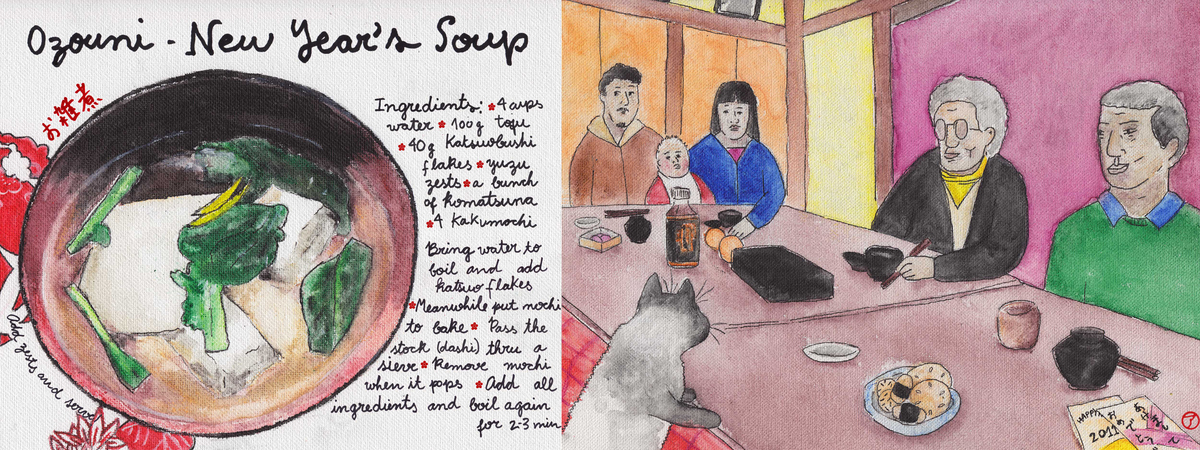 Ozouni - New Year's Soup
お雑煮
Ingredients: *4 cups
water * 100g tofu
*40g Katsuobushi
flakes * yuzu
zests * a bunch
of komatsuna
*4 Kakumochi
Bring water to
boil and add
katsuo flakes
*Meanwhile put mochi
to bake * Pass the
stock (dashi) thru a
sieve * Remove mochi
when it pops *Add all
ingredients and boil again
for 2-3 min
Add zests and serve
HAPPY
2011